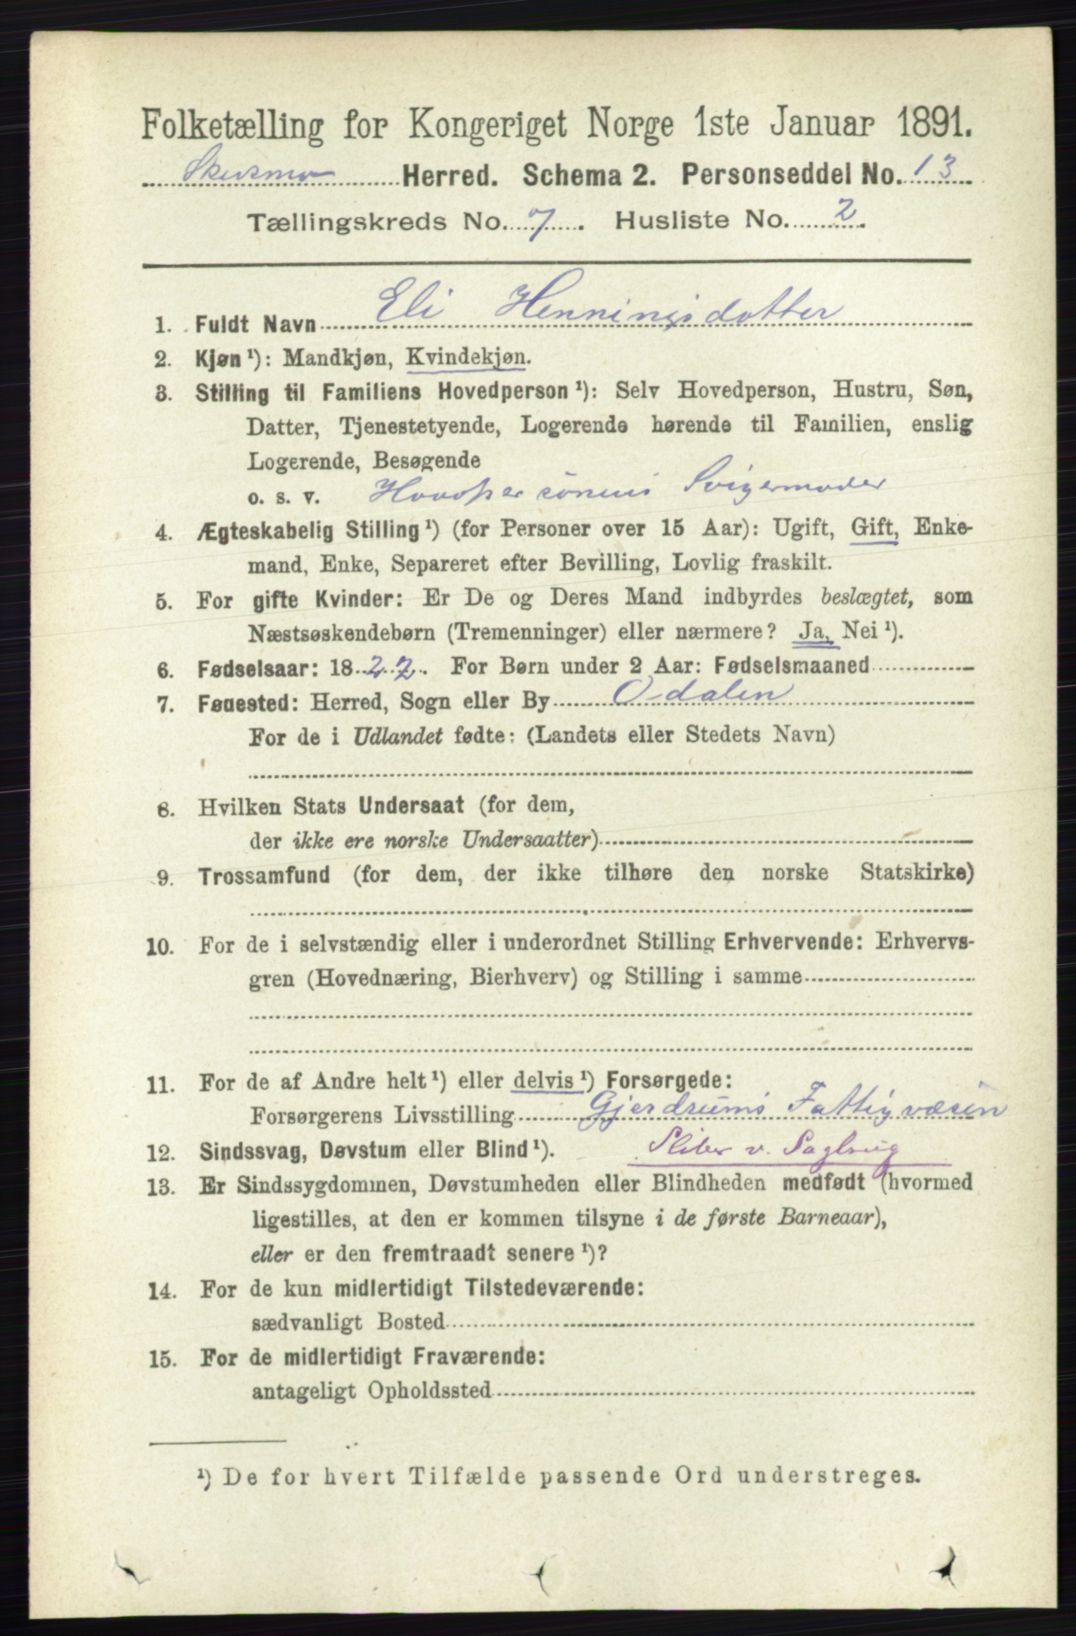 Folketælling for Kongeriget Norge 1ste Januar 1891.
Skedsmo Herred. Schema 2. Personseddel No. 13.
Tællingskreds No. 7. Husliste No. 2.
1. Fuldt Navn Eli Henningsdatter
2. Kjøn ¹): Mandkjøn, Kvindekjøn.
3. Stilling til Familiens Hovedperson ¹): Selv Hovedperson, Hustru, Søn,
Datter, Tjenestetyende, Logerende hørende til Familien, enslig
Logerende, Besøgende
o. s. v. Hovedpersonens Svigermoder
4. Ægteskabelig Stilling ¹) (for Personer over 15 Aar): Ugift, Gift, Enke-
mand, Enke, Separeret efter Bevilling, Lovlig fraskilt.
5. For gifte Kvinder: Er De og Deres Mand indbyrdes beslægtet, som
Næstsøskendebørn (Tremenninger) eller nærmere? Ja, Nei ¹).
6. Fødselsaar: 1827. For Børn under 2 Aar: Fødselsmaaned
7. Fødested: Herred, Sogn eller By Odalen
For de i Udlandet fødte: (Landets eller Stedets Navn)
8. Hvilken Stats Undersaat (for dem,
der ikke ere norske Undersaatter)
9. Trossamfund (for dem, der ikke tilhøre den norske Statskirke)
10. For de i selvstændig eller i underordnet Stilling Erhvervende: Erhvervs-
gren (Hovednæring, Bierhverv) og Stilling i samme
11. For de af Andre helt ¹) eller delvis ¹) Forsørgede:
Forsørgerens Livsstilling Gjerdrums Fattigvæsen
12. Sindssvag, Døvstum eller Blind ¹). Sliber v. Sagbrug
13. Er Sindssygdommen, Døvstumheden eller Blindheden medfødt (hvormed
ligestilles, at den er kommen tilsyne i de første Barneaar),
eller er den fremtraadt senere ¹)?
14. For de kun midlertidigt Tilstedeværende:
sædvanligt Bosted
15. For de midlertidigt Fraværende:
antageligt Opholdssted
¹) De for hvert Tilfælde passende Ord understreges.